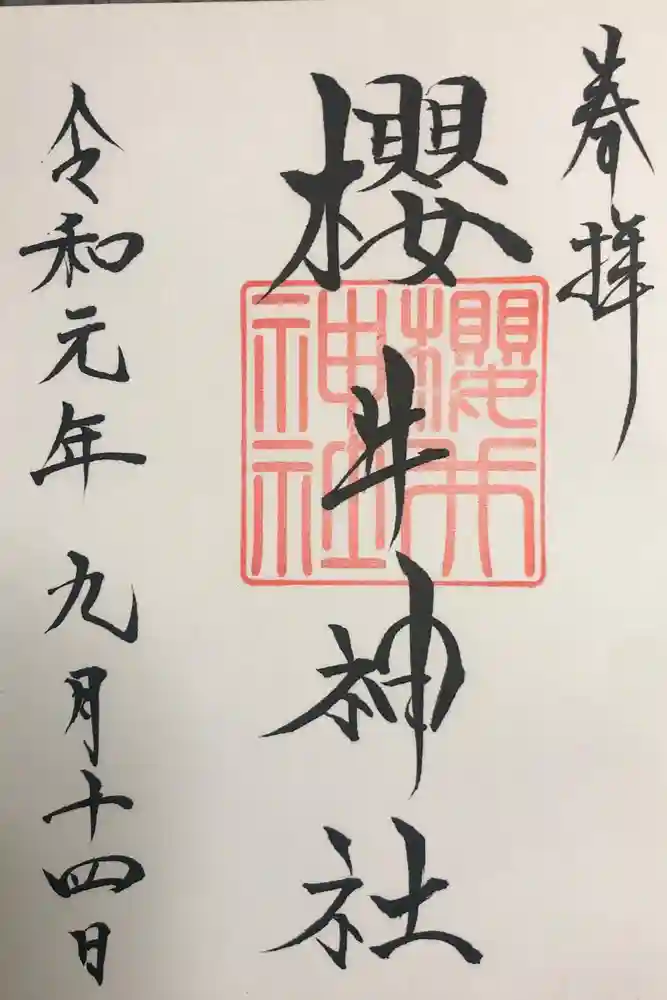 奉拝
櫻井神社
櫻井神社
令和元年九月十四日